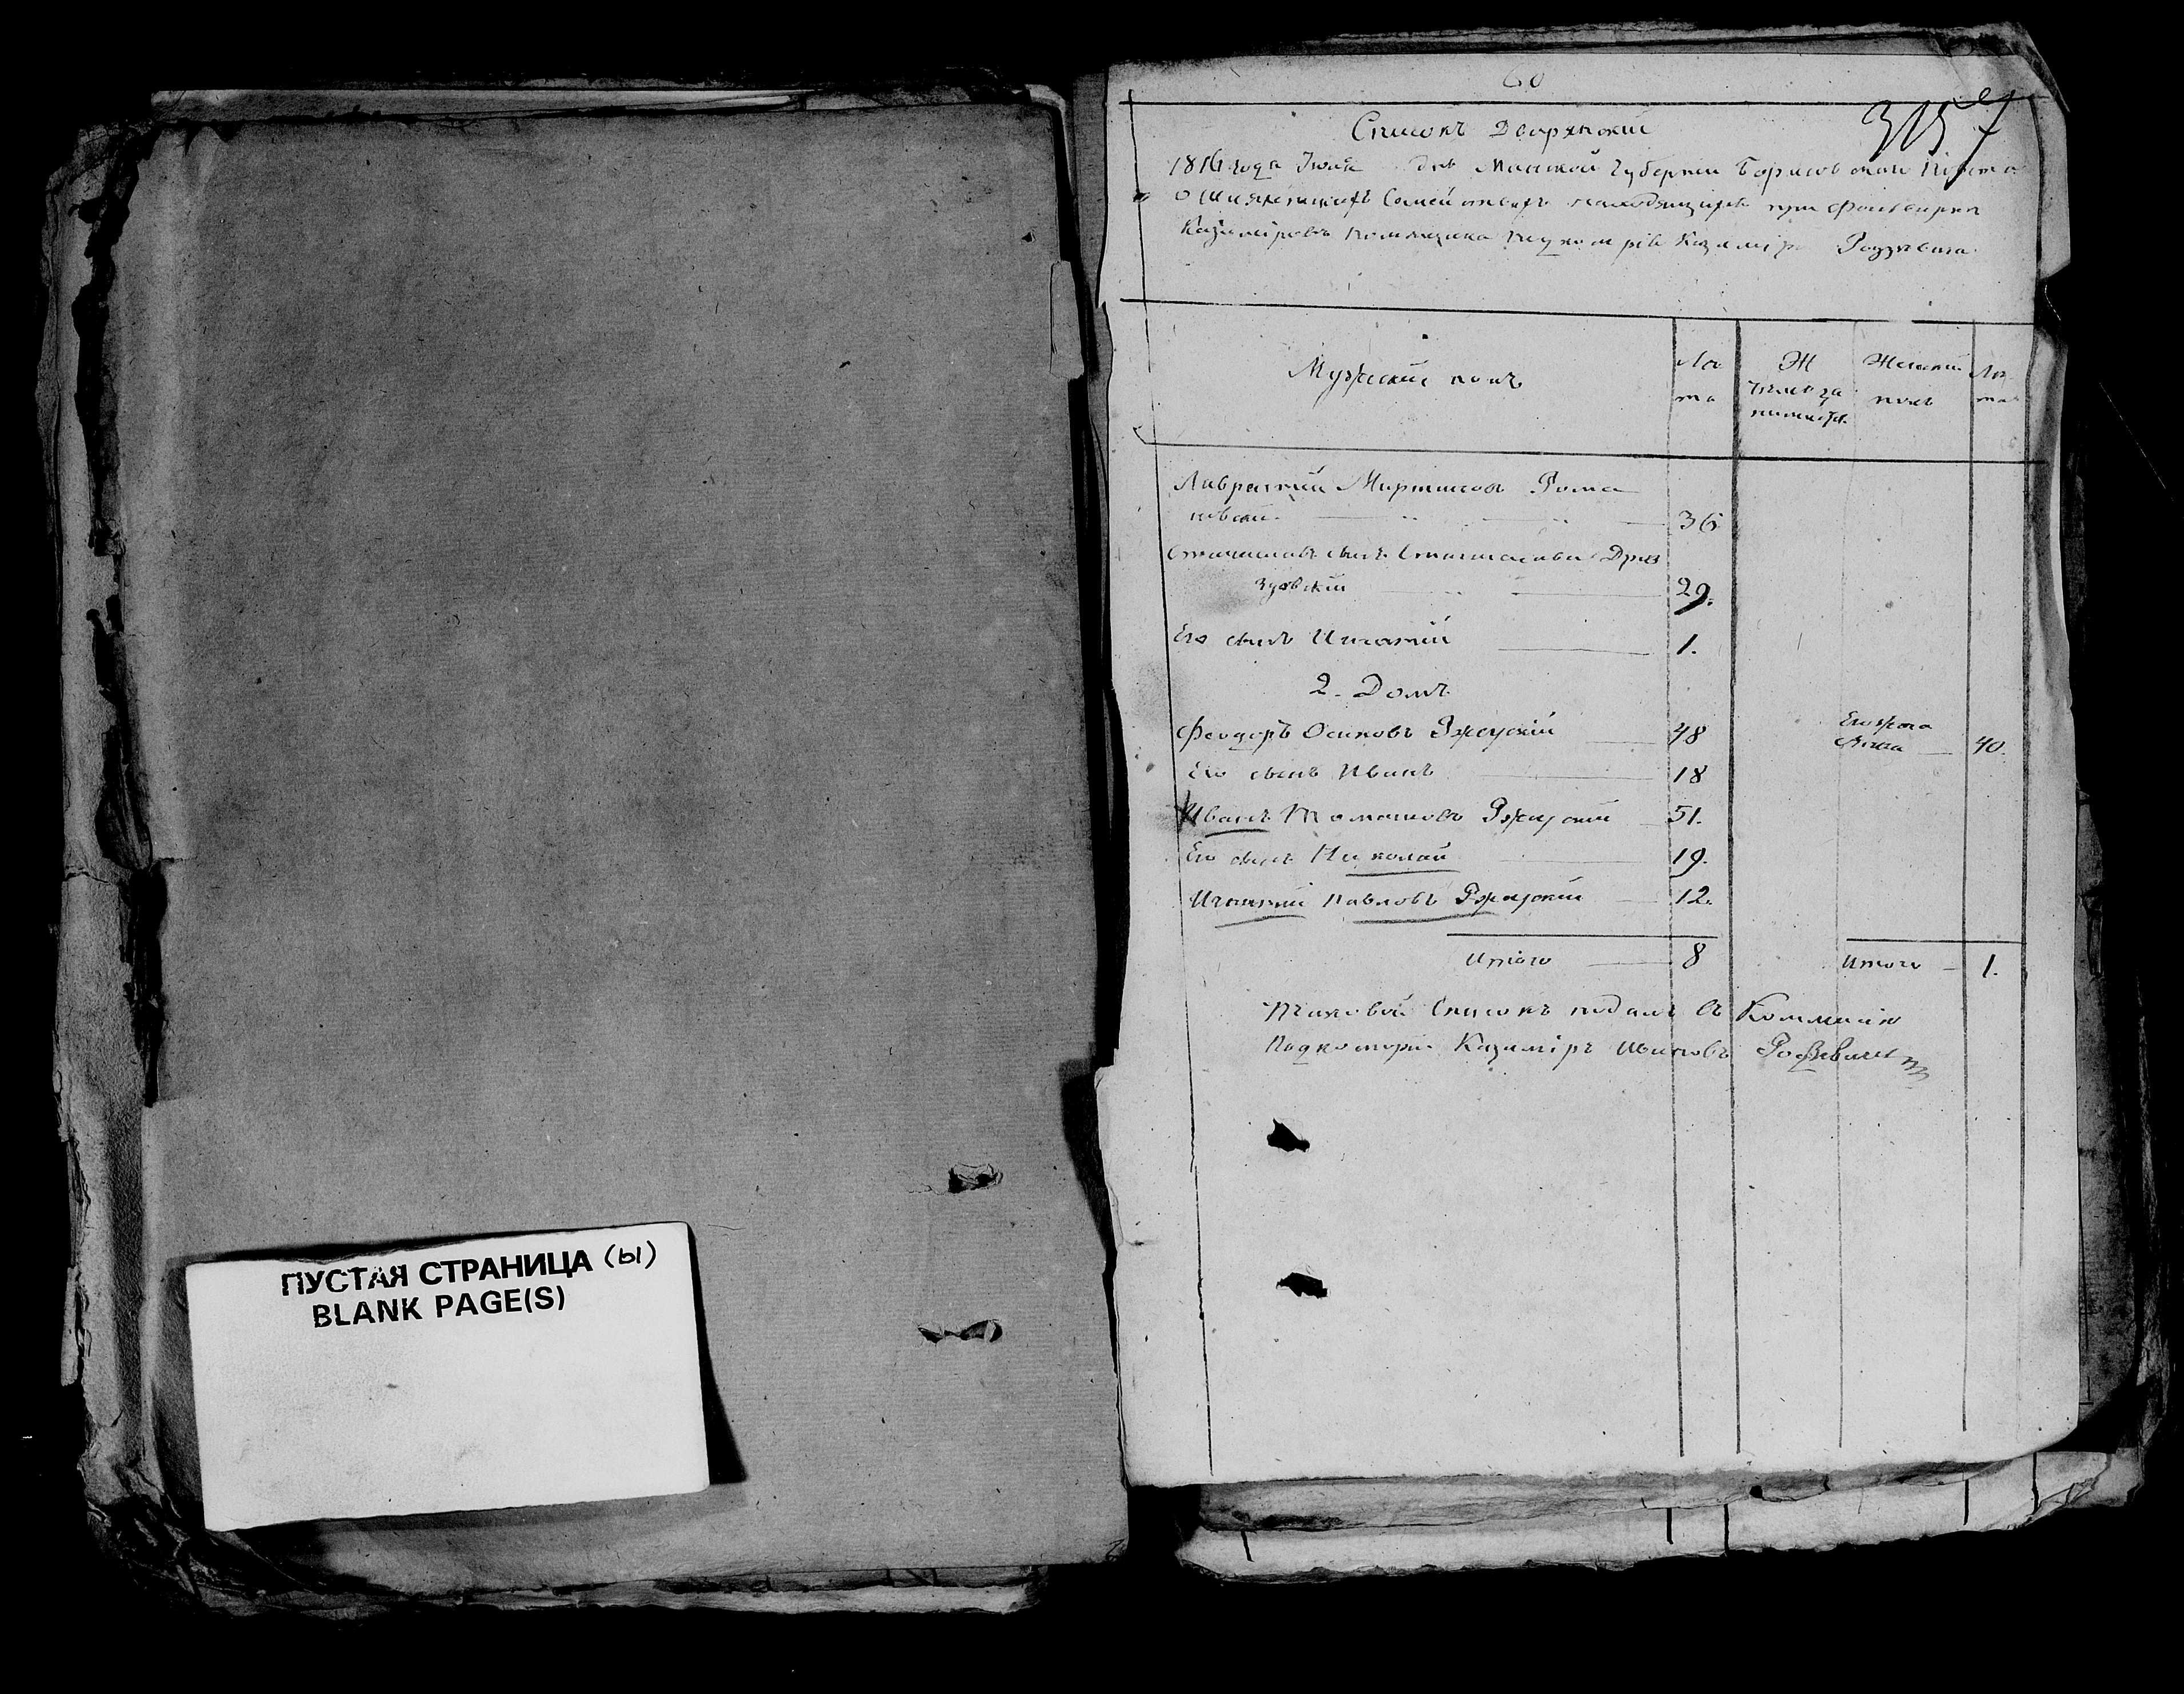 ПУСТАЯ СТРАНИЦА (ы)
BLANK PAGE(S)
60
Списокъ Дворянский
1816 года Июля дня Минской Губернии Борисовскаго Повета
О Шляхетскихъ Семействахъ находящихся при Фольварке
Казимирове помещика Казимира
Мужеский полъ
Ле
та
Ж
Женский
полъ
Ле
та
Лаврентий Мартиновъ Рома
новский 36
Станиславъ сынъ Станислава Дроз
здовский 29.
Его сынъ Игнатий 1.
2. Домъ
Феодоръ Осиповъ Ржеуский 48
Его жена
Анна 40.
Его сынъ Иванъ 18
Иванъ Томашовъ Ржеуский 51.
Его сынъ Николай 19.
Игнатий Павловъ Ржеуский 12.
Итого 8
Итого 1.
Таковой Списокъ подалъ въ Коммисию
Подкоморий Казимиръ Ивановъ